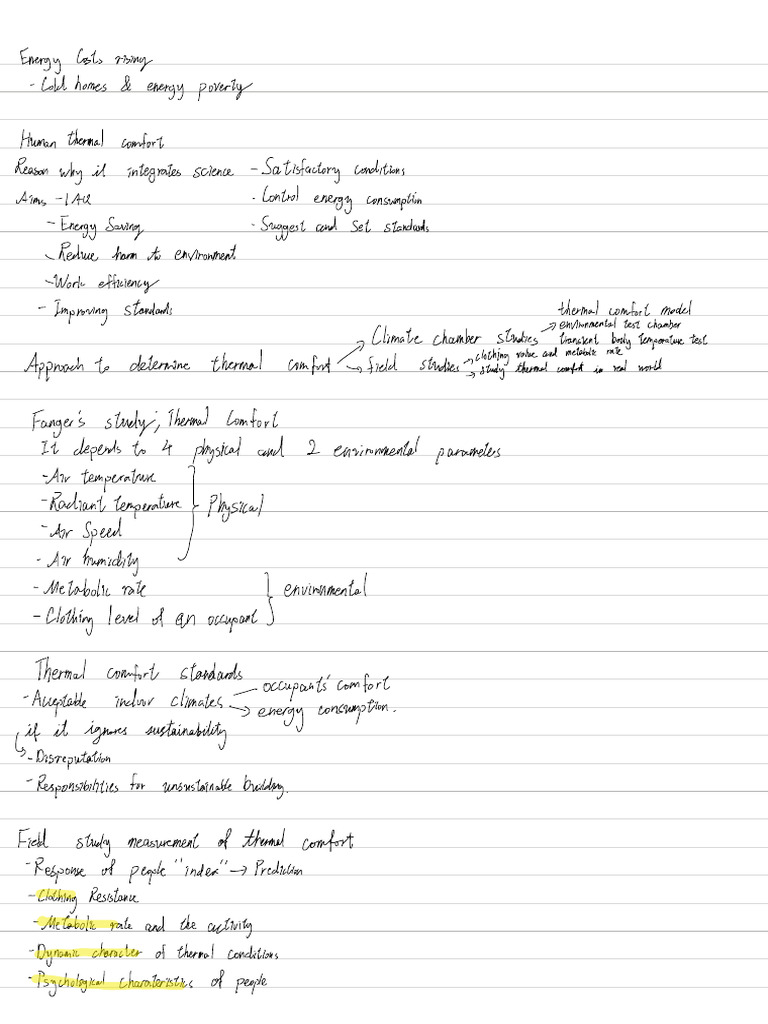 Energy Costs rising
- Cold homes & energy poverty
Human thermal comfort
Reason why it integrates science - Satisfactory conditions
Aims - IAQ - Control energy consumption
- Energy Saving - Suggest and Set standards
- Reduce harm to environment
- Work efficiency
- Improving standards
Approach to determine thermal comfort
→ Climate chamber studies
→ thermal comfort model
environmental test chamber
transient body temperature test
→ field studies
→ clothing value and metabolic rate
→ study thermal comfort in real world
Fanger's study; Thermal Comfort
It depends to 4 physical and 2 environmental parameters
- Air temperature
- Radiant temperature } Physical
- Air Speed
- Air humidity
- Metabolic rate } environmental
- Clothing level of an occupant
Thermal comfort standards
- Acceptable indoor climates
occupants' comfort
→ energy consumption.
if it ignores sustainability
→ - Disreputation
- Responsibilities for unsustainable building.
Field study measurement of thermal comfort
- Response of people "index" → Prediction
- Clothing Resistance
- Metabolic rate and the activity
- Dynamic character of thermal conditions
- Psychological charateristics of people